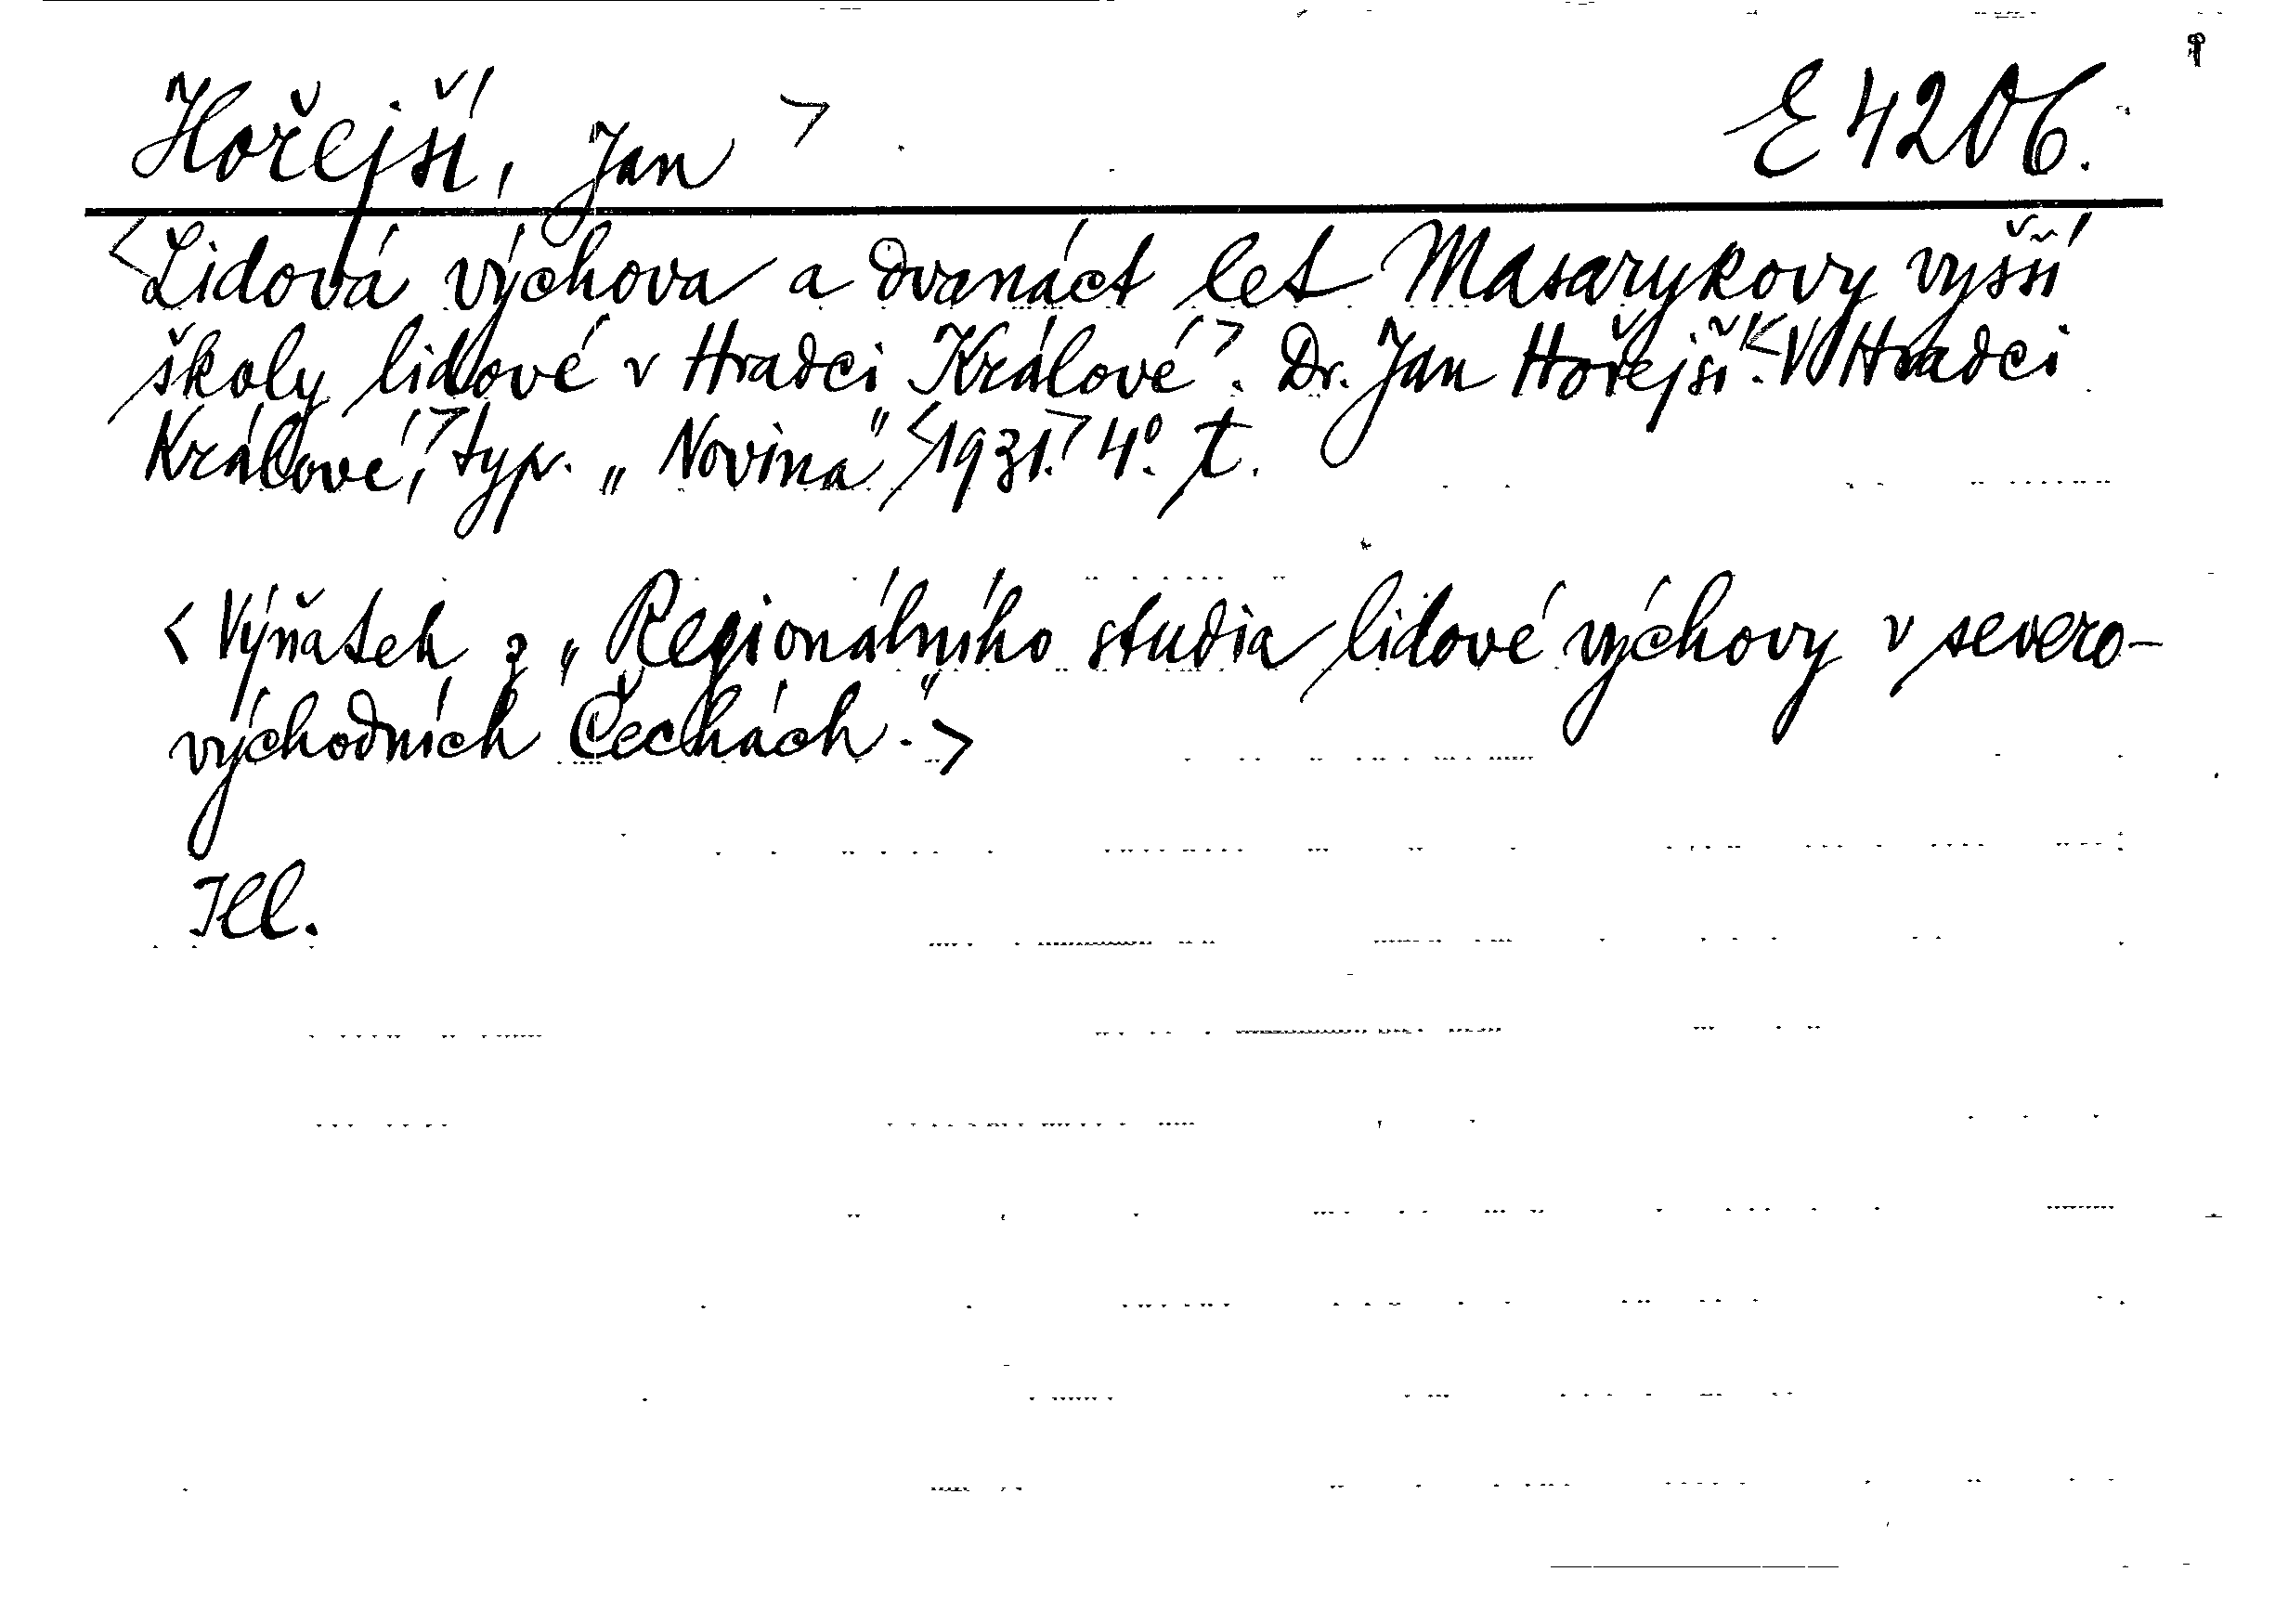 Hořejší, Jan > E 4206.
<Lidová výchova a dvanáct let Masarykovy vyšší
školy lidové v Hradci Králové>. Dr. Jan Hořejší. <V Hradci
Králové,> typ. „Novina" <1931.> 4°. t.
<Výňatek z „Regionálního studia lidové výchovy v severo-
východních Čechách.">
Ill.